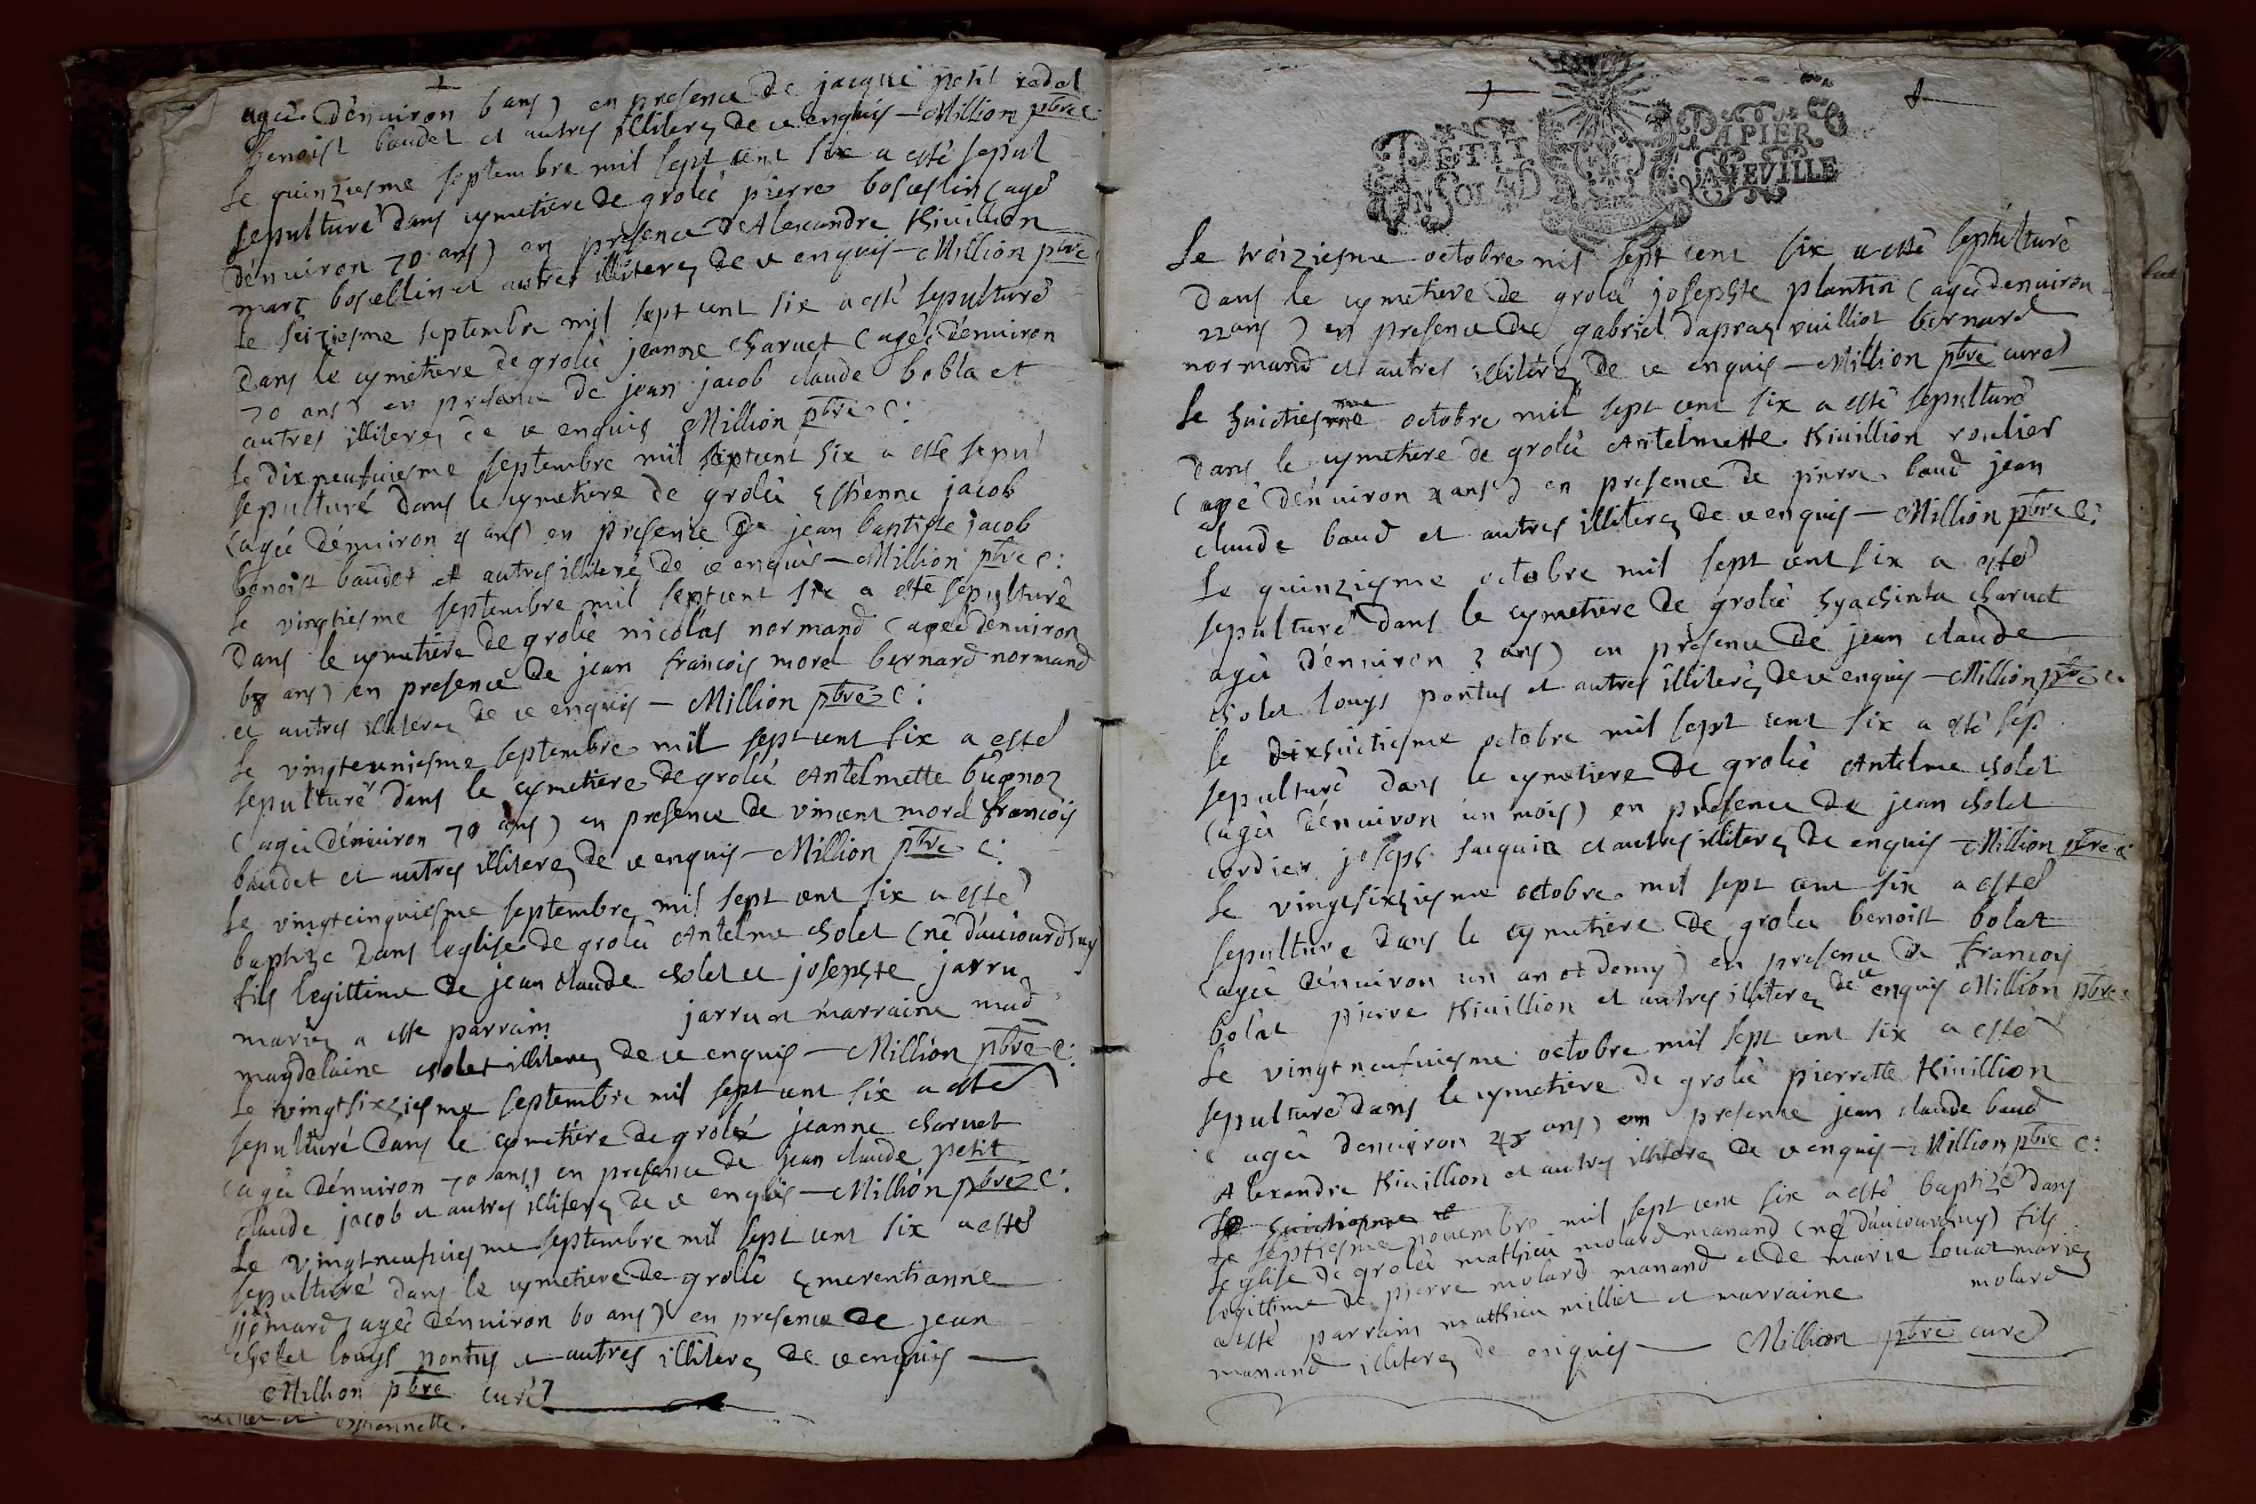 agée d'enuiron 6 ans) en presence de jacque petit radol
benoist baudet et autres illiterez de ce enquis — Million pbre c:
Le quinziesme septembre mil sept cent six a esté sepul
sepulturé dans cymetiere de grolée pierre boseslin (agé
d'enuiron 70 ans) en presence de Alexandre Kiuillion
marc bosellin et autres illiterez de ce enquis — Million pbre
Le seiziesme septembre mil sept cent six a esté sepulturé
dans le cymetiere de grolée jeanne charuet (agée d'enuiron
70 ans) en presence de jean jacob claude bobla et
autres illiterez de ce enquis Million pbre c:
Le dixneufuiesme septembre mil sept cent six a esté sepul
sepulturé dans le cymetiere de grolée Estienne jacob
(agée d'enuiron 4 ans) en presence de jean baptiste jacob
benoist baudet et autres illiterez de ce enquis — Million pbre c:
Le vingtiesme septembre mil sept cent six a esté sepulturé
dans le cymetiere de grolée nicolas normand (agée denuiron
68 ans) en presence de jean francois morel bernard normand
et autres illiterez de ce enquis — Million pbre c:
Le vingteuniesme septembre mil sept cent six a esté
sepulturé dans le cymetiere de grolée Antelmette bugnoz
(agée d'enuiron 70 ans) en presence de vincent morel francois
baudet et autres illiterez de ce enquis — Million pbre c:
Le vingtcinquiesme septembre mil sept cent six a esté
baptize dans leglise de grolée Antelme cholet (né d'auiourdhuy
fils legittime de jean claude cholet et josephte jarru
mariez a esté parrain jarru et marraine mad
magdelaine cholet illiterez de ce enquis — Million pbre c:
Le vingtsixziesme septembre mil sept cent six a esté
sepulturé dans le cymetiere de grolée jeanne charuet
(agée d'enuiron 70 ans) en presence de jean claude petit
claude jacob et autres illiterez de ce enquis — Million pbre c:
Le vingtneufuiesme septembre mil sept cent six a esté
sepulturé dans le cymetiere de grolée Emerentianne
(agée d'enuiron 60 ans) en presence de jean
cholet louys pontus et autres illiterez de ce enquis —
Million pbre curé
PETIT PAPIER
UN SOL 4 D LA FEVILLE
Le troiziesme octobre mil sept cent six a esté sepulturé
dans le cymetiere de grolée josephte plantin (agée denuiron
22 ans) en presence de gabriel dapraz vuilliot bernard
normand et autres illiterez de ce enquis — Million pbre curé
Le huictiesme octobre mil sept cent six a esté sepulturé
dans le cymetiere de grolée Antelmette Kiuillion roulier
(agé d'enuiron 4 ans) en presence de pierre baud jean
claude baud et autres illiterez de ce enquis — Million pbre c:
Le quinziesme octobre mil sept cent six a esté
sepulturé dans le cymetiere de grolée hyachinta charuet
agée d'enuiron 3 ans) en presence de jean claude
cholet louys pontus et autres illiterez de ce enquis — Million pbre c.
Le dixhuictiesme octobre mil sept cent six a esté sep
sepulturé dans le cymetiere de grolée Antelme cholet
(agée d'enuiron un mois) en presence de jean cholet
cordier joseph jacquin et autres illiterez de enquis — Million pbre c:
Le vingtsixziesme octobre mil sept cent six a esté
sepulture dans le cymetiere de grolée benoist bolat
(agée d'enuiron un an et demy) en presence de francoy
bolat pierre Kiuillion et autres illiterez de ce enquis Million pbre c
Le vingtneufuiesme octobre mil sept cent six a esté
sepulturé dans le cymetiere de grolée pierrette Kiuillion
(agée denuiron ans) en presence jean claude baud
Alexandre Kiuillion et autres illiterez de ce enquis — Million pbre c:
Le huictiesme
Le septiesme nouembre mil sept cent six a esté baptizé dans
leglise de grolée mathieu molard manand (né d'auiourdhuy) fils
legittime de pierre molard manand et de marie louat mariez
a esté parrain matthieu milliet et marraine molard
manand illiterez de enquis — Million pbre curé